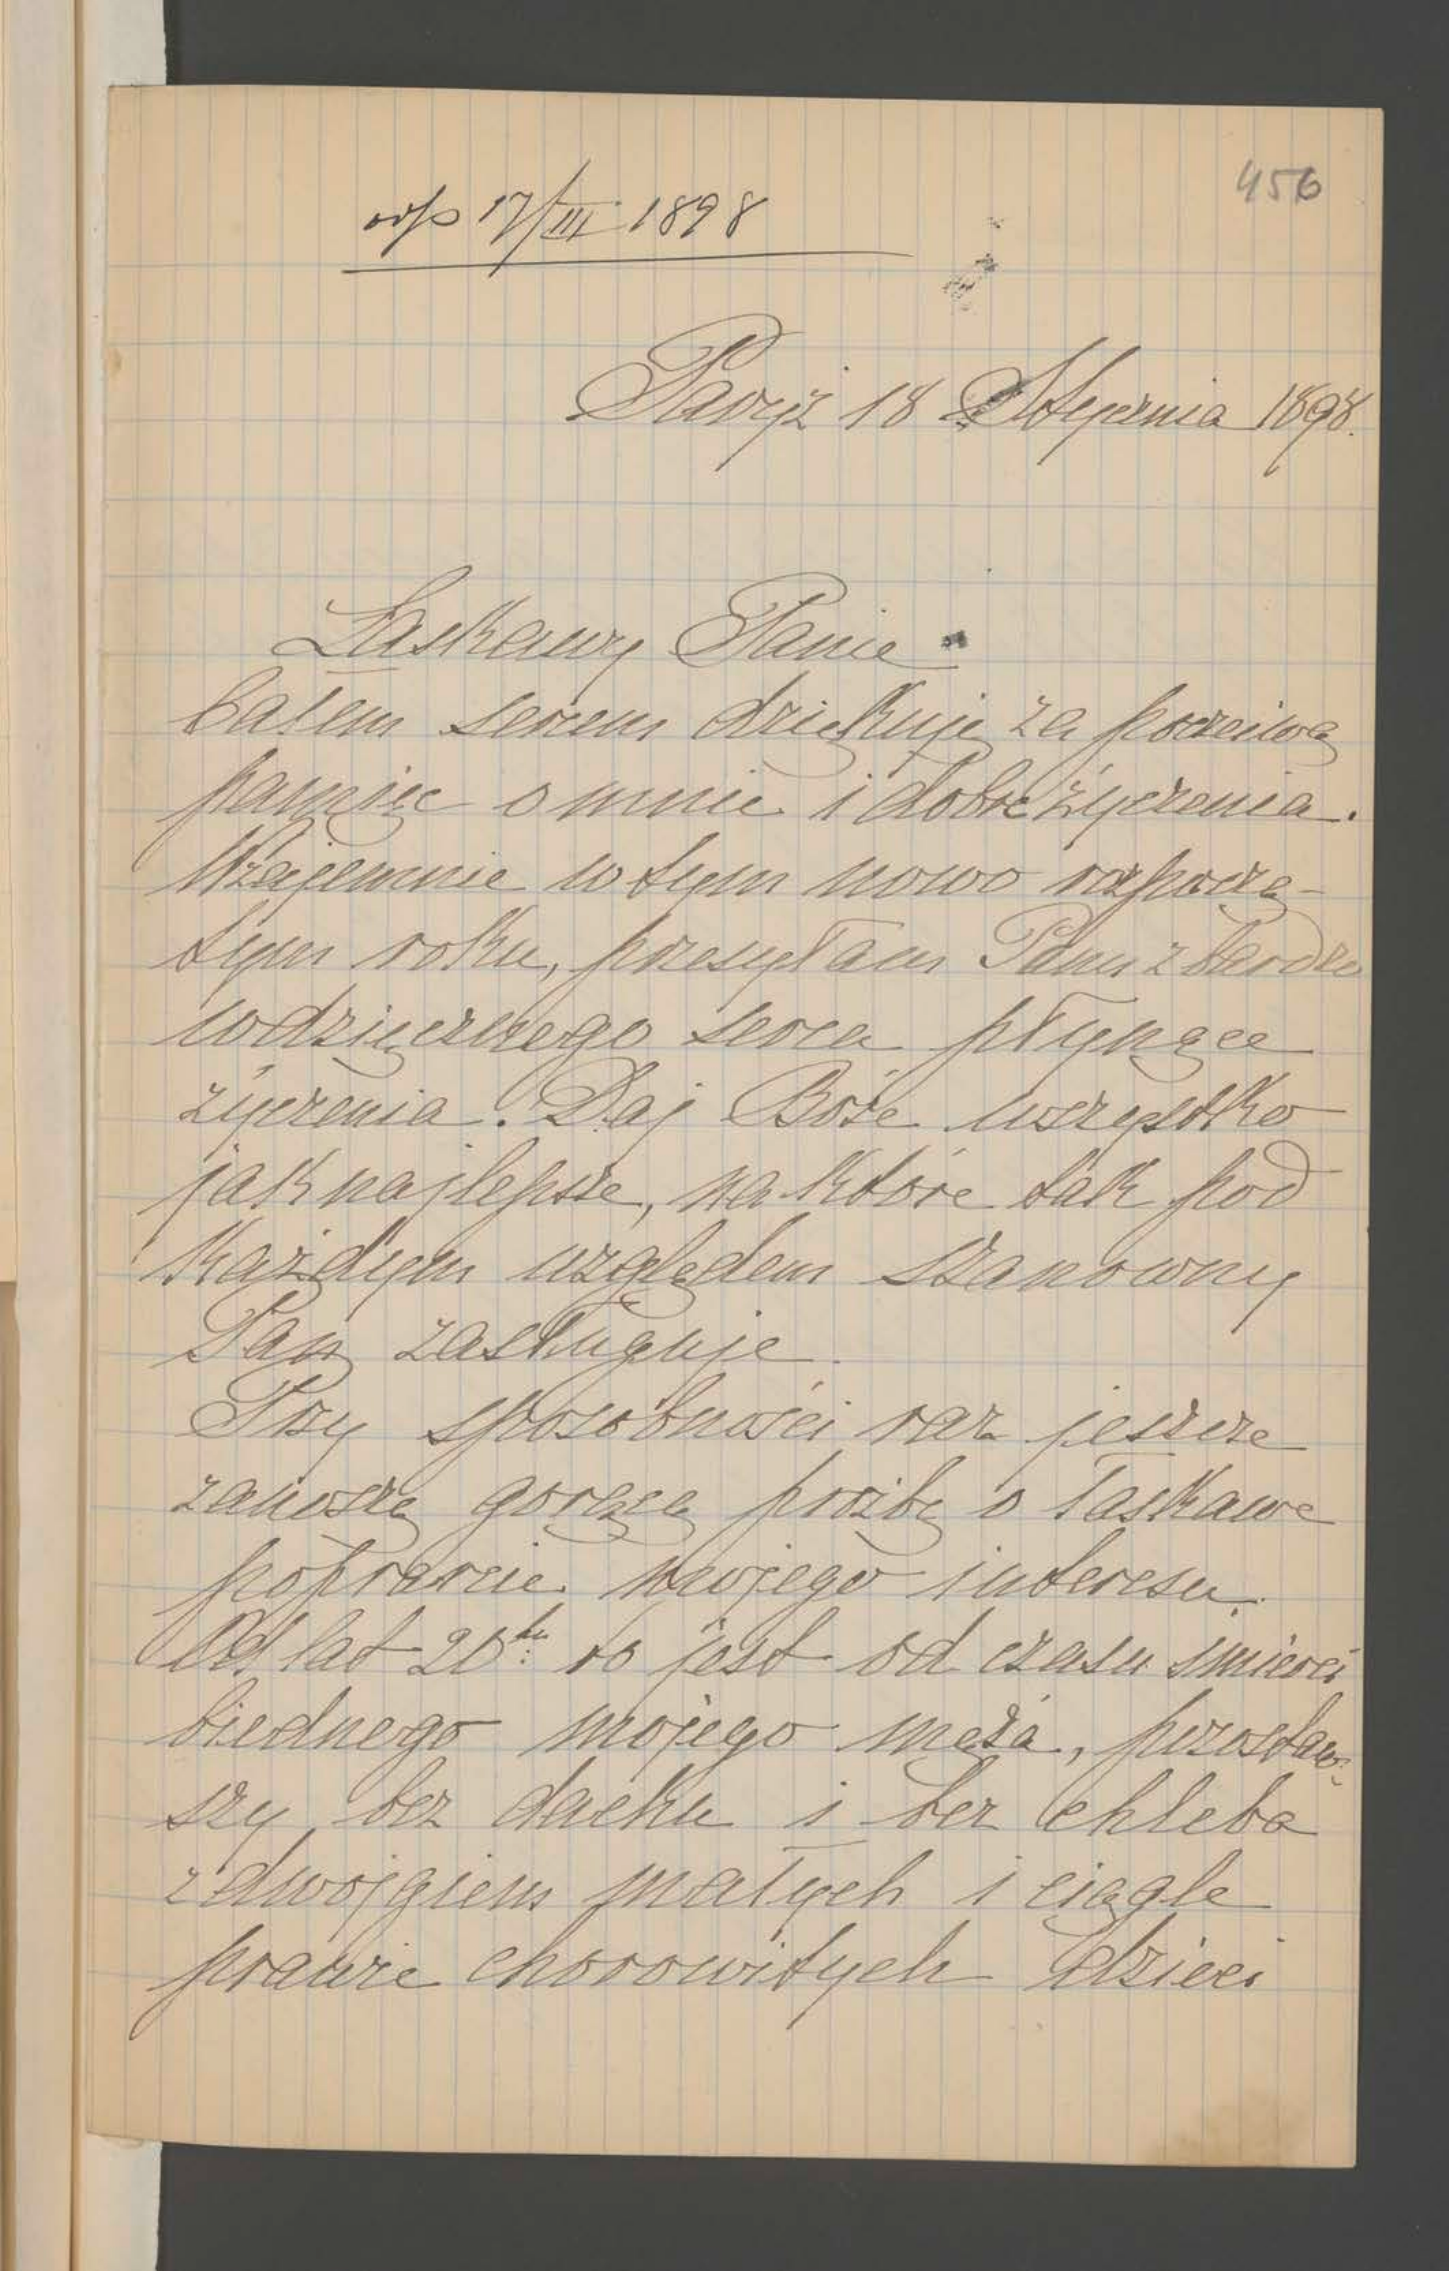 456
odp 17/III 1898
Paryż 18 Stycznia 1898.
Łaskawy Panie
Całem sercem dziękuję za poczciwą
pamięc o mnie i dobre życzenia.
Wzajemnie w tym nowo rozpoczę-
tym roku, przesyłam Panu z bardzo
wdzięcznego serca płynące
życzenia. Daj Boże wszystko
jaknajlepsze, na które tak pod
każdym względem szanowny
Pan zasługuje.
Przy sposobności raz jeszcze
zanoszę gorącą proźbę o łaskawe
poparcie mojego interesu.
Od lat 20tu to jest od czasu śmierci
biednego mojego męża, pozostaw-
szy bez dachu i bez chleba
z dwojgiem małych i ciągle
prawie chorowitych dzieci